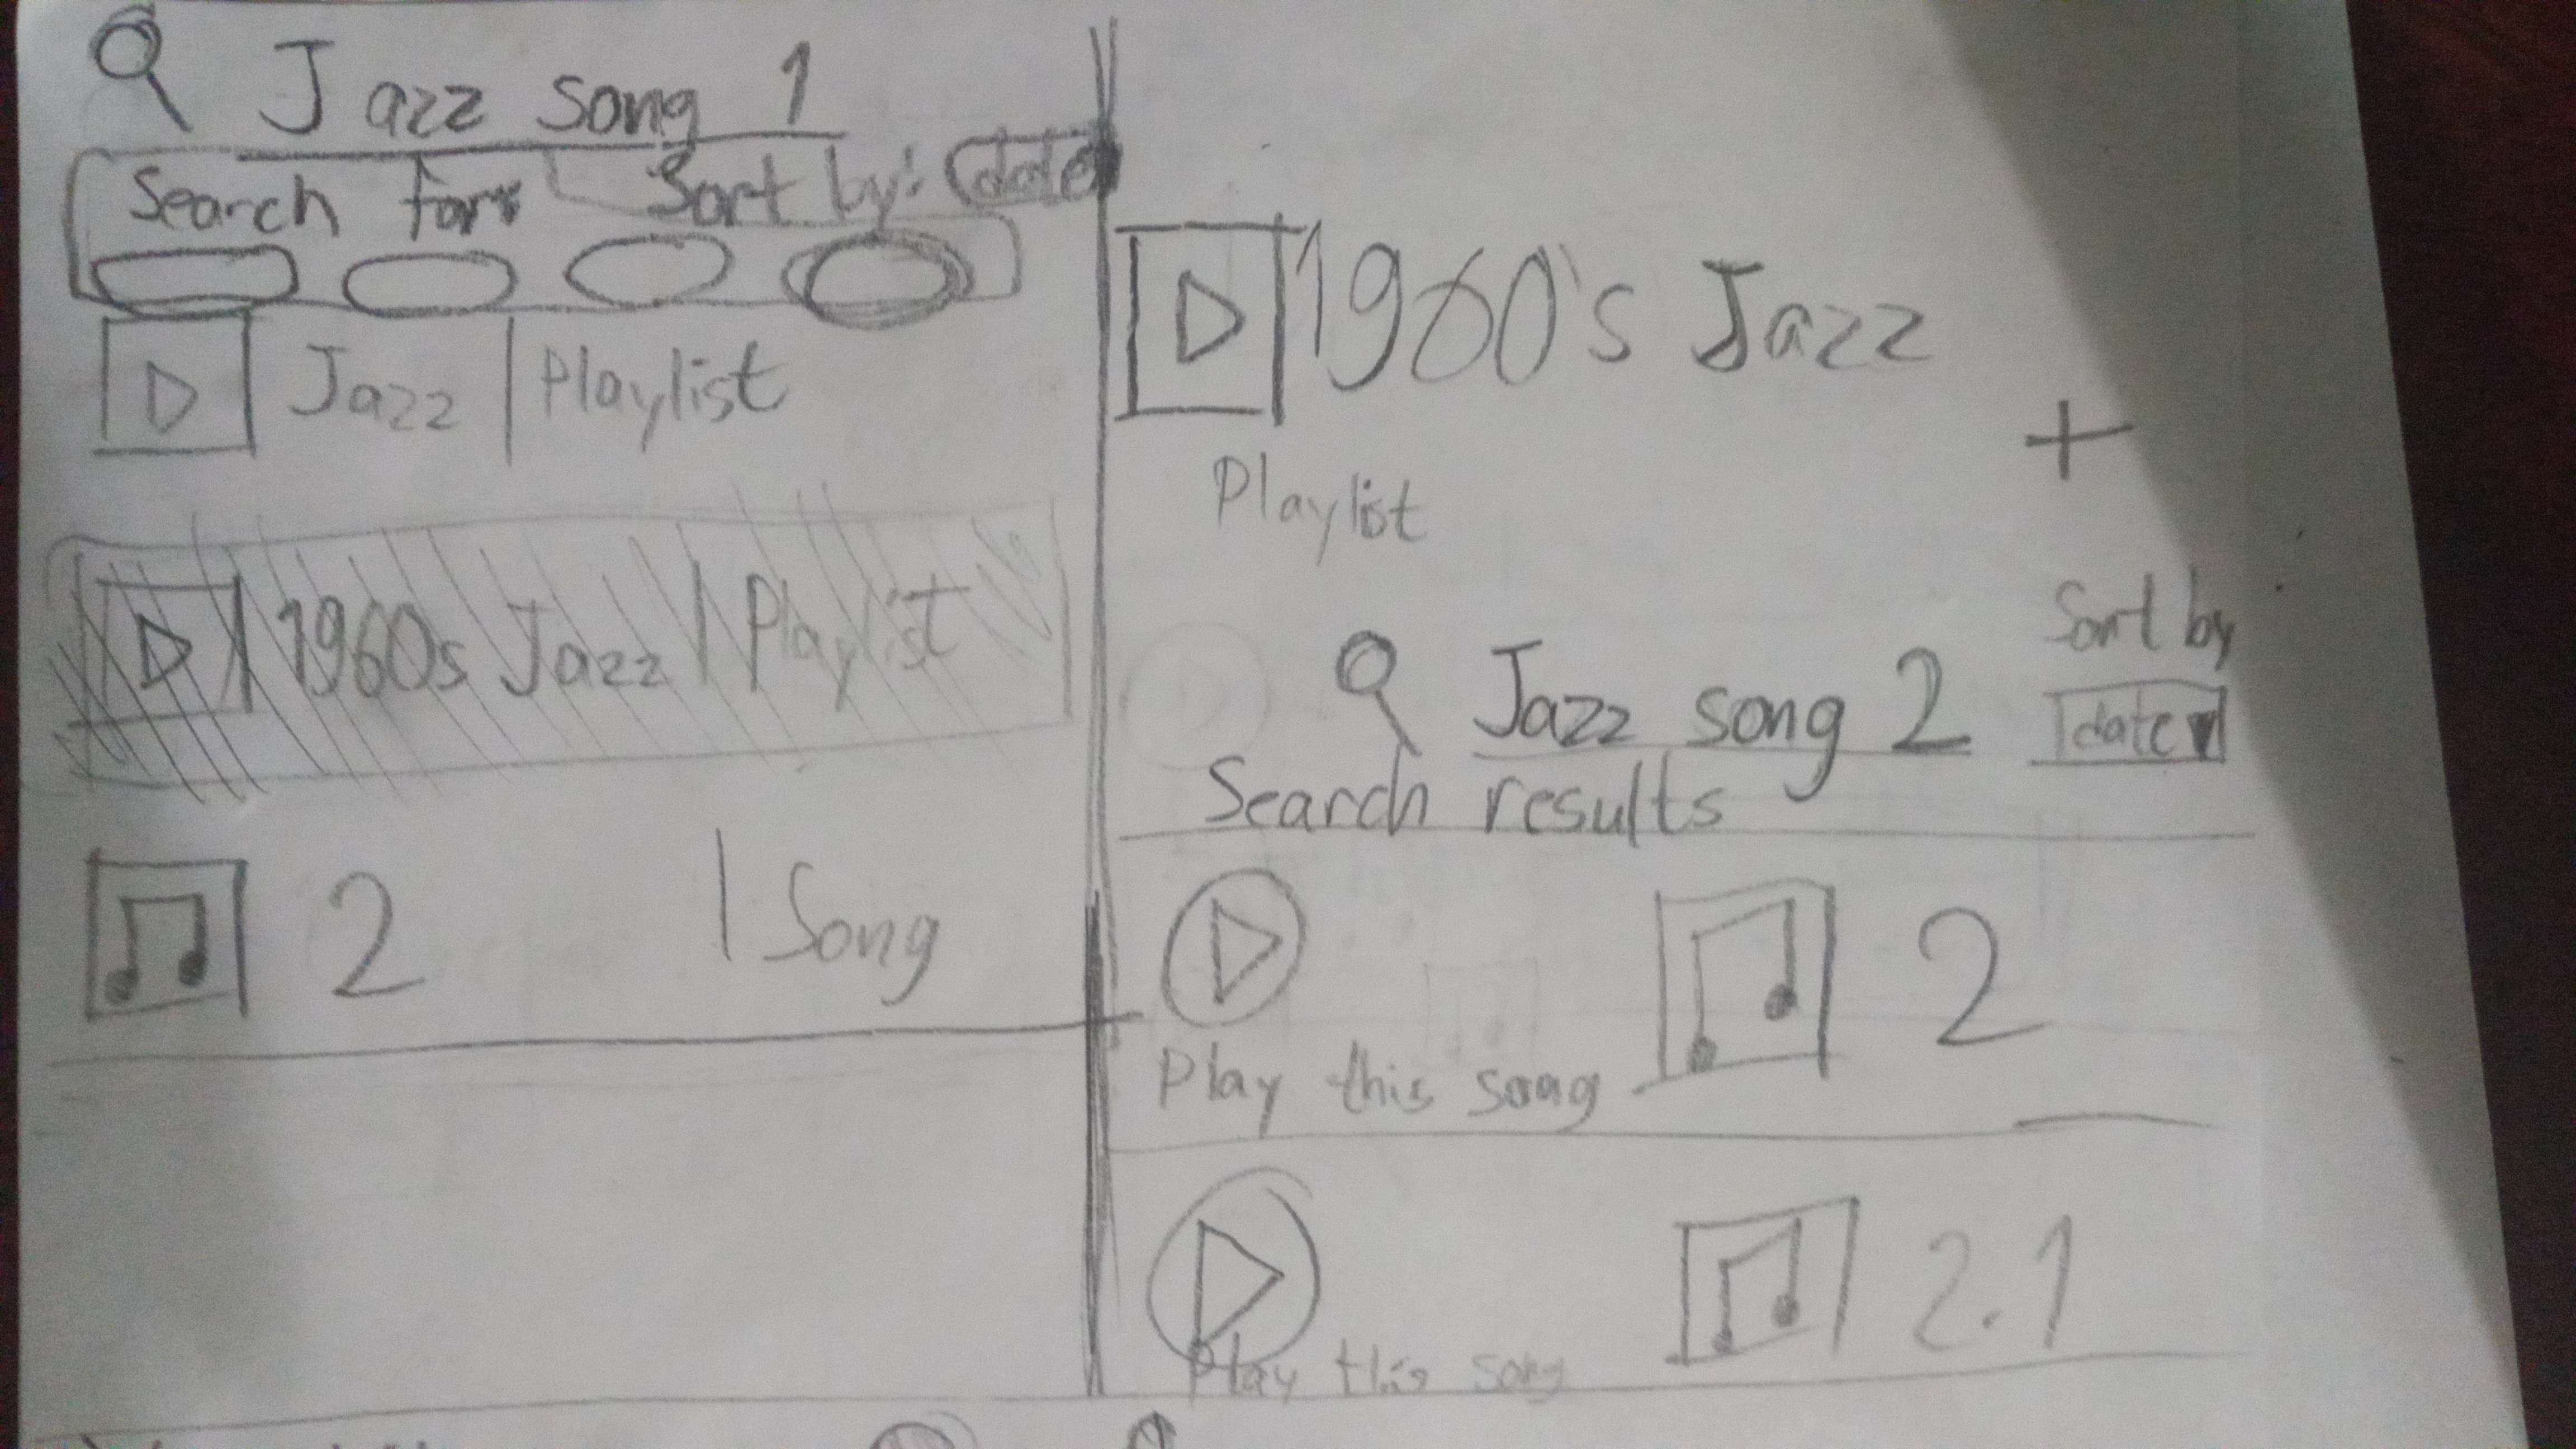 Jazz song 1
Search for Sort by: date
Jazz | Playlist
1960s Jazz | Playlist
2 | Song
1960's Jazz
+
Playlist
Jazz song 2
Sort by
date
Search results
2
Play this song
2.1
Play this song